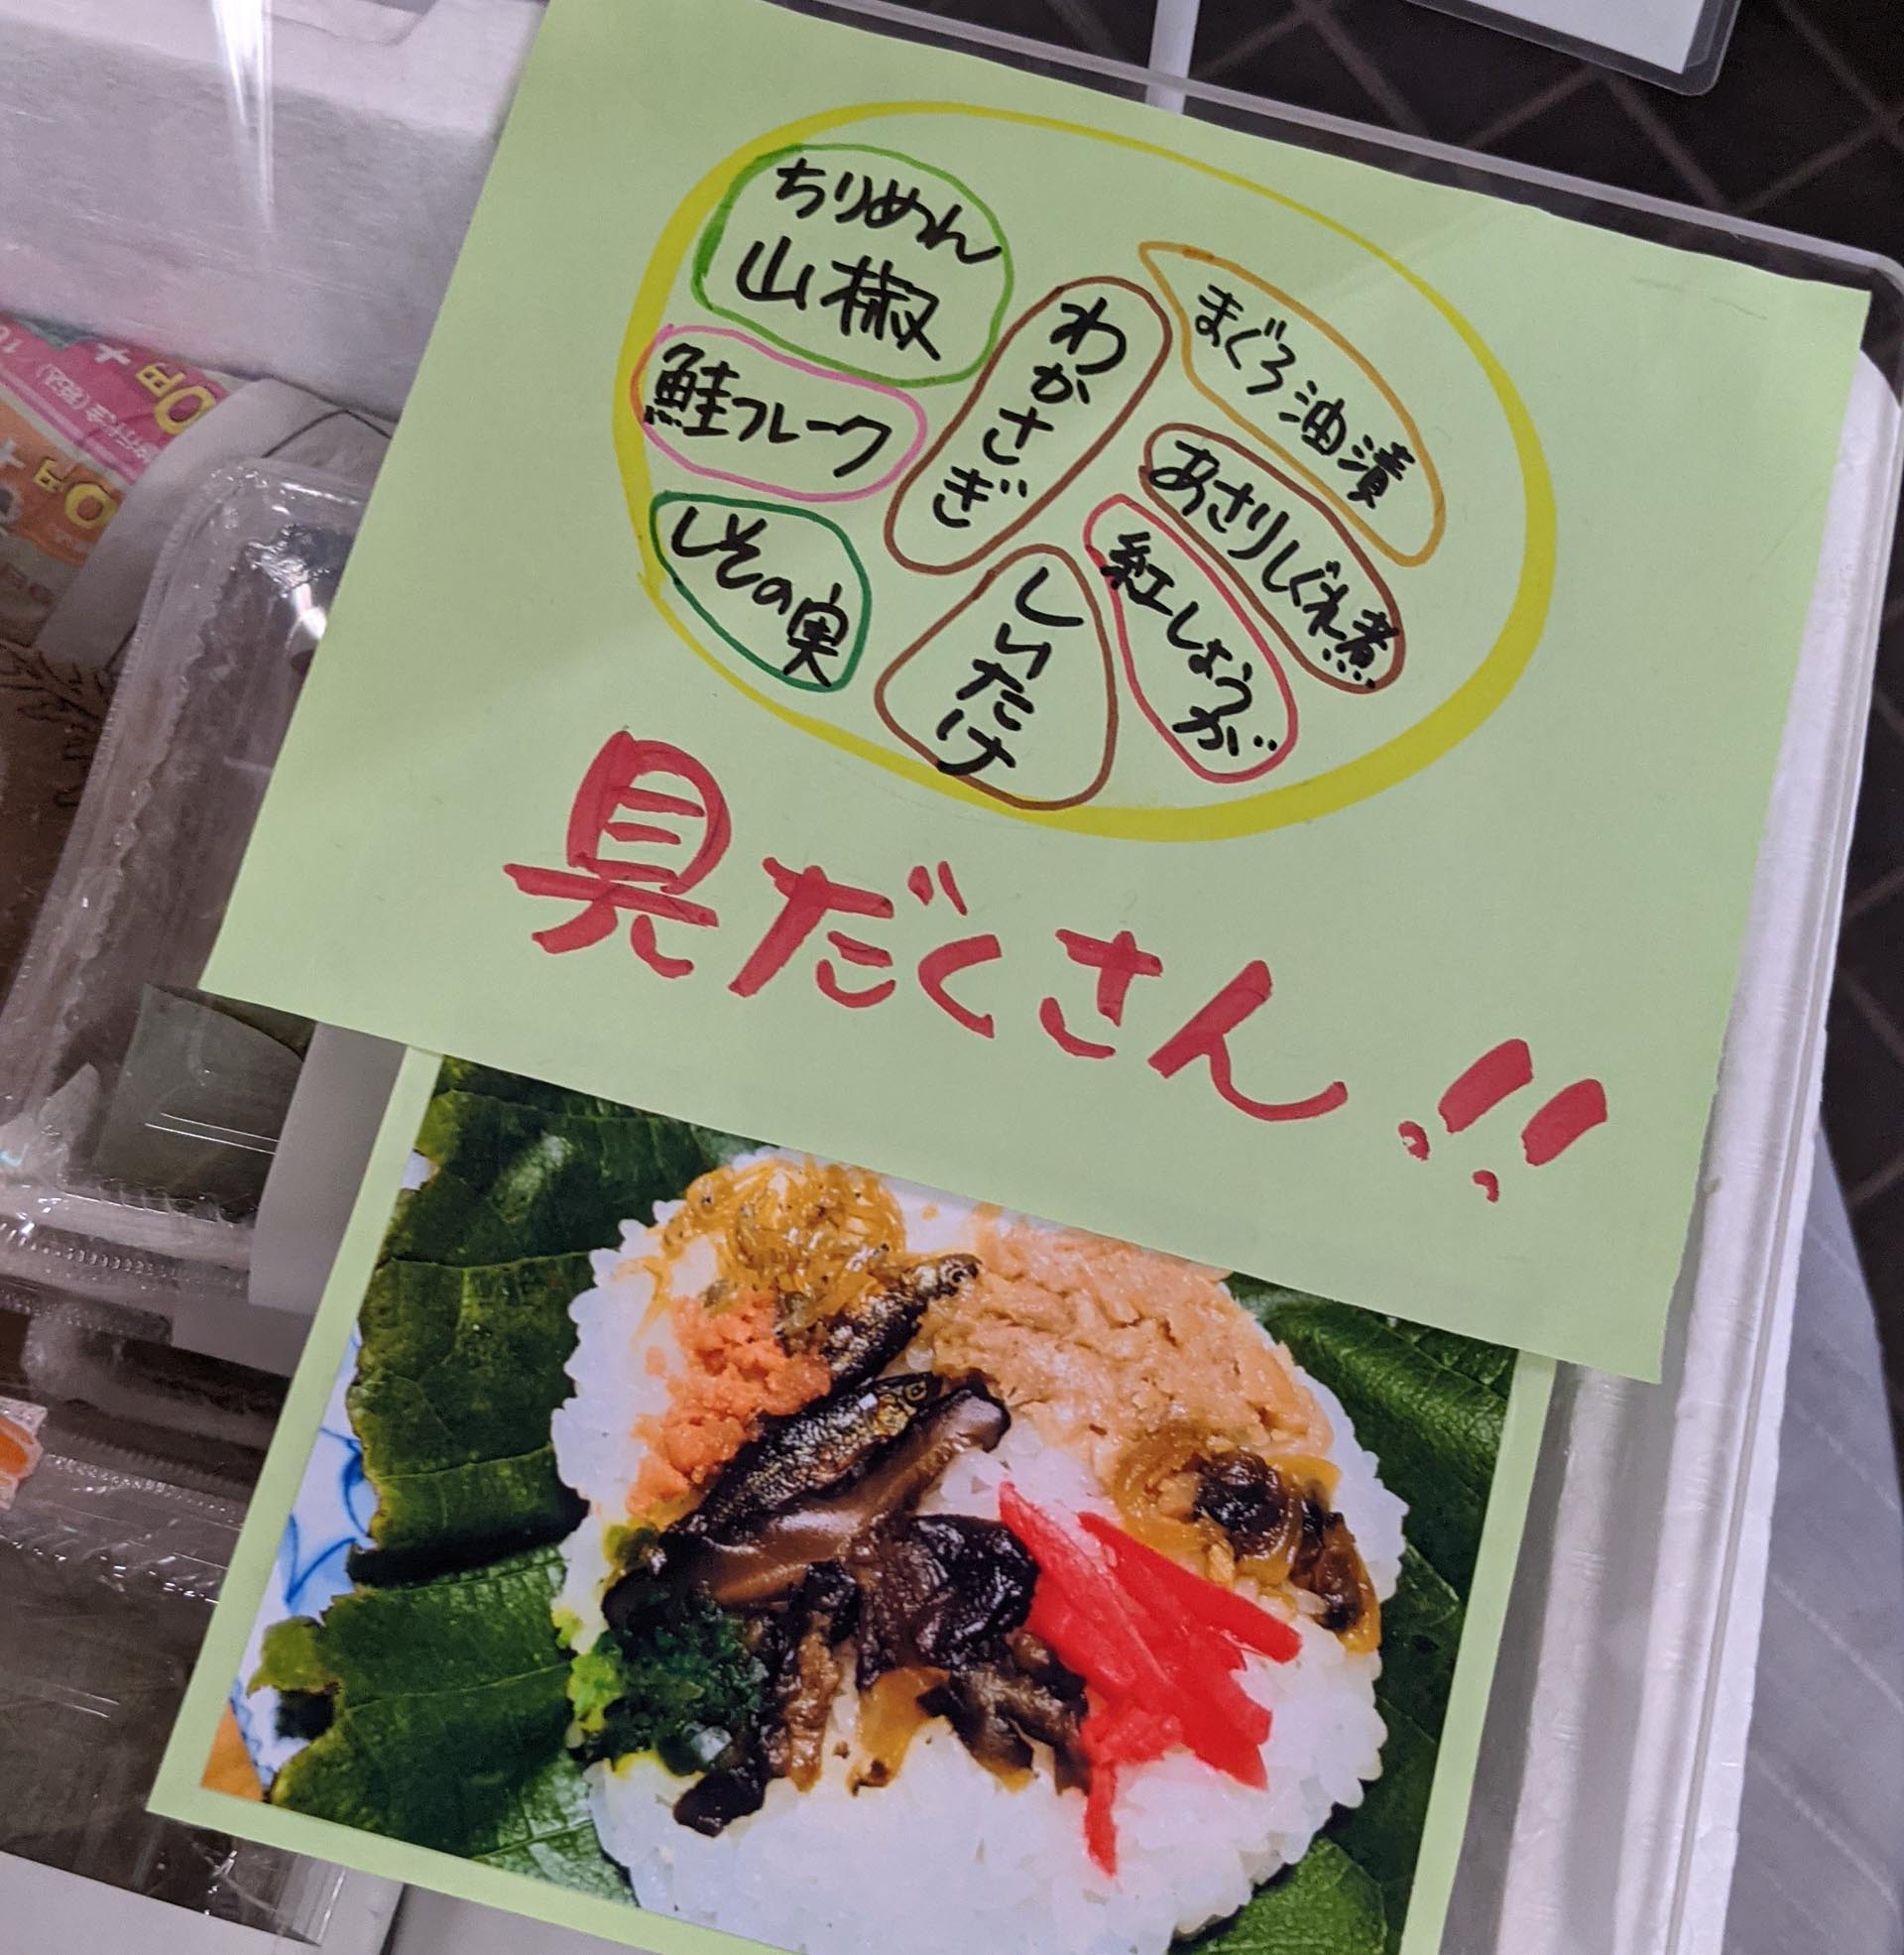 ちりめん
山椒
鮭フレーク
しその実
わかさぎ
しいたけ
まぐろ油漬
あさりしぐれ煮
紅しょうが
具だくさん!!